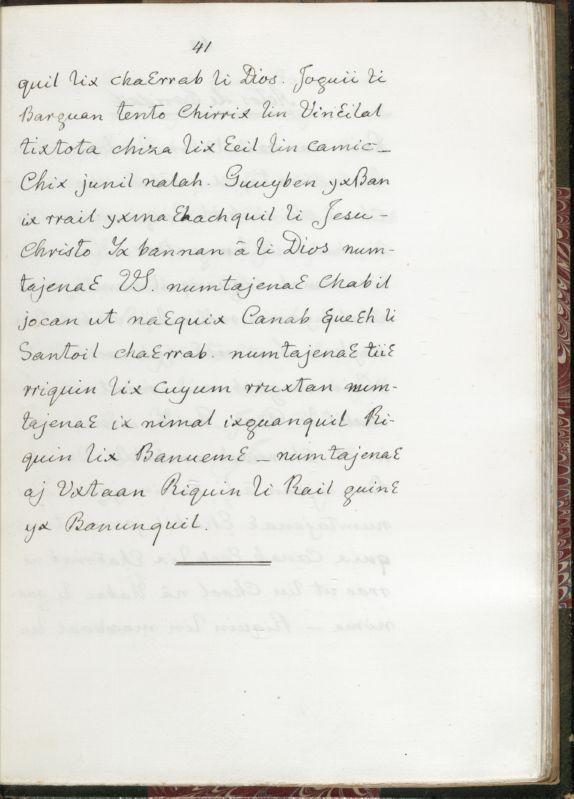 41
quil lix chaƐrrab li Dios. Joguii li
Barguan tento Chirrix lin VinƐilal
tixtota chiza lix Ɛeil lin camic_
Chix junil nalah. Guuyben yxBan
ix rrail yxmaƐhachquil li Jesu-
Christo Yx bannan ā li Dios num-
tajenaƐ VS. numtajenaƐ Chabil
jocan ut naƐquix Canab ƐueƐh li
Santoil chaƐrrab. numtajenaƐ tiiƐ
rriquin lix cuyum rruxtan num-
tajenaƐ ix nimal ixguanquil Ri-
quin lix BanuemƐ _ numtajenaƐ
aj Vxtaan Riquin li Rail guinƐ
yx Banunquil.